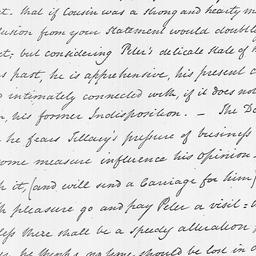 t. that if Cousin was a strong and hearty m
lusion from your Statement would doubtl
t; but considering Peter's delicate state of h
s past, he is apprehensive, his present c
intimately connected with, if it does not
n, his former Indisposition. — The Do
he fears Tillary's pressure of business
ome measure influence his Opinion—
h it, (and will send a Carriage for him)
h pleasure go and pay Peter a visit=
less there shall be a speedy alteration
he thinks no time should be lost in